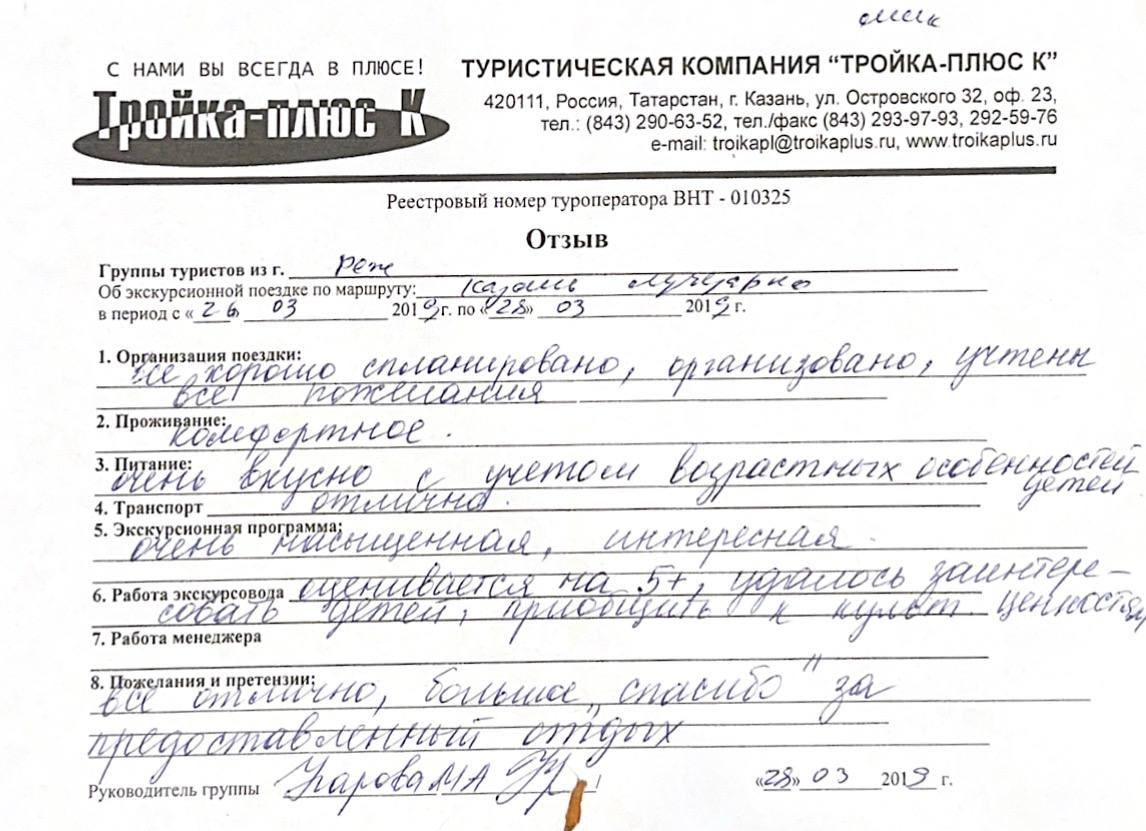 С НАМИ ВЫ ВСЕГДА В ПЛЮСЕ!
Тройка-плюс К
ТУРИСТИЧЕСКАЯ КОМПАНИЯ “ТРОЙКА-ПЛЮС К”
420111, Россия, Татарстан, г. Казань, ул. Островского 32, оф. 23,
тел.: (843) 290-63-52, тел./факс (843) 293-97-93, 292-59-76
e-mail: troikapl@troikaplus.ru, www.troikaplus.ru
Реестровый номер туроператора ВНТ - 010325
Отзыв
Группы туристов из г. Реж
Об экскурсионной поездке по маршруту: Казань
в период с «26» 03 2019г. по «28» 03 2019г.
1. Организация поездки:
все хорошо спланировано, организовано, учтены
все пожелания
2. Проживание:
комфортное.
3. Питание:
очень вкусно с учетом возрастных особенностей
детей
4. Транспорт отлично.
5. Экскурсионная программа:
очень насыщенная, интересная.
6. Работа экскурсовода оценивается на 5+, удалось заинтере-
совать детей, приобщить к культ. ценностям
7. Работа менеджера
8. Пожелания и претензии:
все отлично, большое „спасибо" за
предоставленный отдых
Руководитель группы
«28» 03 2019 г.